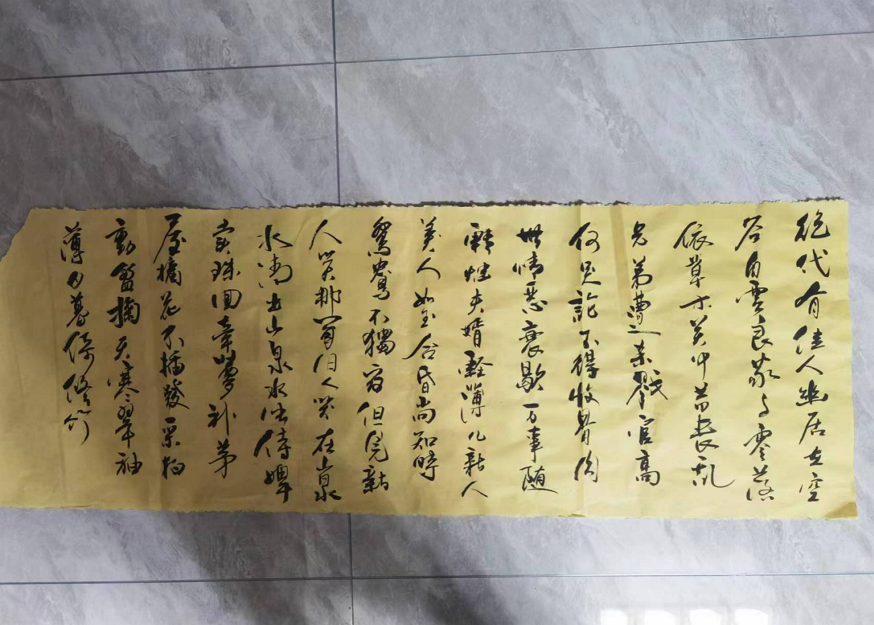 绝代有佳人幽居在空
谷自云良家子零落
依草木关中昔丧乱
兄弟遭杀戮官高
何足论不得收骨肉
世情恶衰歇万事随
转烛夫婿轻薄儿新人
美人如玉合昏尚知时
鸳鸯不独宿但见新
人笑那闻旧人哭在山泉
水清出山泉水浊侍婢
卖珠回牵萝补茅
屋摘花不插发采柏
动盈掬天寒翠袖
薄日暮倚修竹